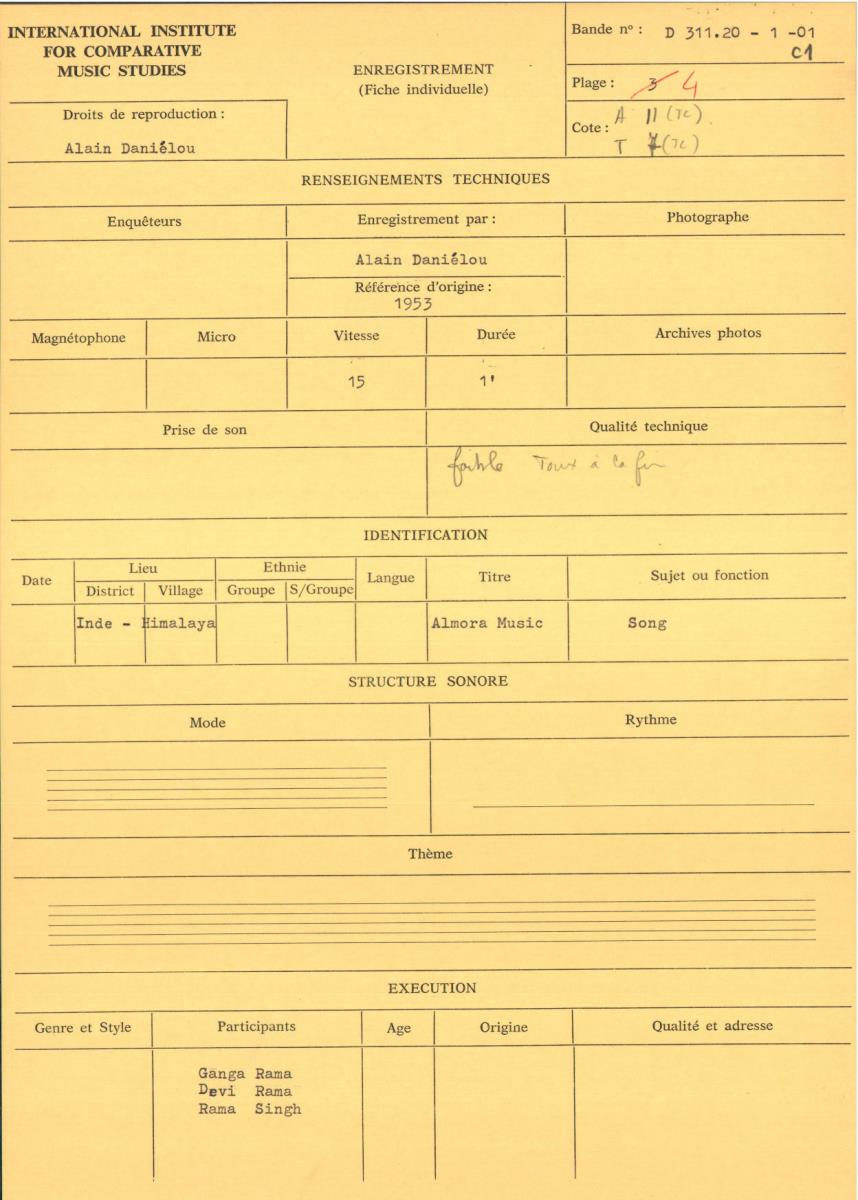 INTERNATIONAL INSTITUTE
FOR COMPARATIVE
MUSIC STUDIES
ENREGISTREMENT
(Fiche individuelle)
Bande nº : D 311.20 - 1 -01
C1
Plage : 3 4
Droits de reproduction :
Alain Daniélou
Cote : A 11 (TC)
T 7 (TC)
RENSEIGNEMENTS TECHNIQUES
Enquêteurs
Enregistrement par :
Photographe
Alain Daniélou
Référence d'origine :
1953
Magnétophone
Micro
Vitesse
Durée
Archives photos
15
1'
Prise de son
Qualité technique
faible Toux à la fin
IDENTIFICATION
Date
Lieu
Ethnie
Langue
Titre
Sujet ou fonction
District
Village
Groupe
S/Groupe
Inde - Himalaya
Almora Music
Song
STRUCTURE SONORE
Mode
Rythme
Thème
EXECUTION
Genre et Style
Participants
Age
Origine
Qualité et adresse
Ganga Rama
Devi Rama
Rama Singh